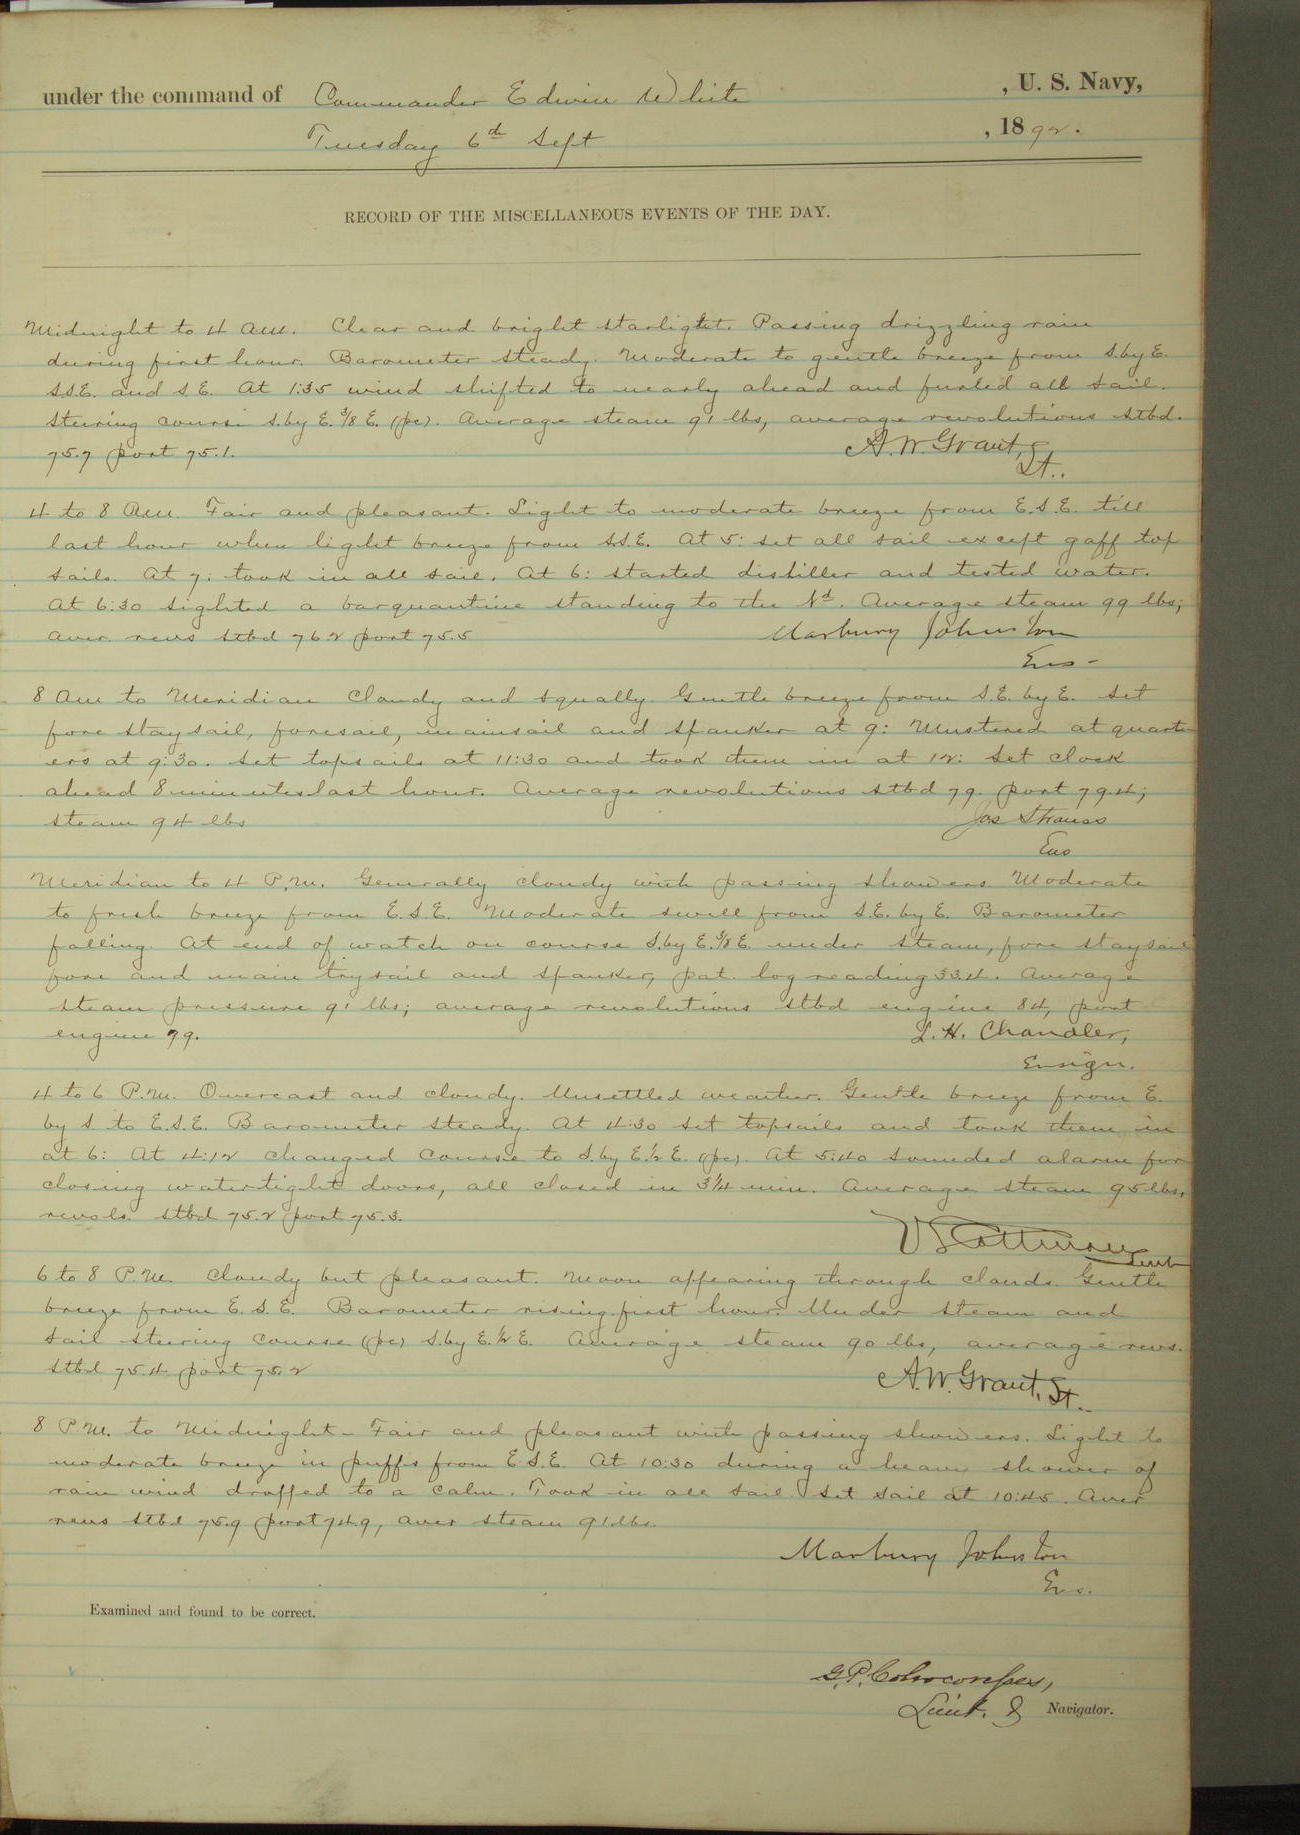 under the command of Commander Edwin White , U. S. Navy,
Tuesday 6th Sept , 1892.
RECORD OF THE MISCELLANEOUS EVENTS OF THE DAY.
Midnight to 4 A.M. Clear and bright starlight. Passing drizzling rain
during first hour. Barometer steady. Moderate to gentle breeze from S.by E.
S.S.E. and S.E. At 1:35 wind shifted to nearly ahead and furled all sail.
Steering course S.by E.3/8 E. (pc). Average steam 91 lbs, average revolutions stbd.
75.7 port 75.1. A. W. Grant,
Lt..
4 to 8 A.M. Fair and pleasant. Light to moderate breeze from E.S.E. till
last hour when light breeze from S.S.E. At 5: set all sail except gaff top
sails. At 7: took in all sail. At 6: started distiller and tested water.
At 6:30 sighted a barquantine standing to the Nd. Average steam 99 lbs;
aver. revs stbd 76.2 port 75.5 Marbury Johnston
Ens -
8 Am to Meridian Cloudy and squally Gentle breeze from S.E. by E. Set
fore staysail, foresail, mainsail and spanker at 9: Mustered at quart
ers at 9:30. Set topsails at 11:30 and took them in at 12: Set clock
ahead 8 minutes last hour. Average revolutions stbd 79. port 79.4;
steam 94 lbs Jos Strauss
Ens
Meridian to 4 P.M. Generally cloudy with passing showers. Moderate
to fresh breeze from E.S.E. Moderate swell from S.E. by E. Barometer
falling. At end of watch on course S.by E.3/8 E. under steam, fore staysail
fore and main trysail and spanker, pat. log reading 33.4. Average
steam pressure 91 lbs; average revolutions stbd engine 84, port
engine 79. L. H. Chandler,
Ensign.
4 to 6 P.M. Overcast and cloudy. Unsettled weather. Gentle breeze from E.
by S to E.S.E. Barometer steady. At 4:30 set topsails and took them in
at 6: At 4:12 changed course to S.by E.1/2 E. (pc). At 5:40 sounded alarm for
closing watertight doors, all closed in 3 1/4 min. Average steam 95 lbs,
revols. stbd 75.2 port 75.3.
Lieut
6 to 8 P.M. Cloudy but pleasant. Moon appearing through clouds. Gentle
breeze from E.S.E. Barometer rising first hour. Under steam and
sail steering course (pc) S.by E.1/2 E. Average steam 90 lbs, average revs.
stbd 75.4 port 75.2 A. W. Grant, Lt..
8 P.M. to Midnight - Fair and pleasant with passing showers. Light to
moderate breeze in puffs from E.S.E. At 10:30 during a heavy shower of
rain wind dropped to a calm. Took in all sail. Set sail at 10:45. Aver
revs stbd 75.9 port 74.9, aver steam 91 lbs.
Marbury Johnston
Ens.
Examined and found to be correct.
G. P. Colvocoresses,
Lieut. & Navigator.